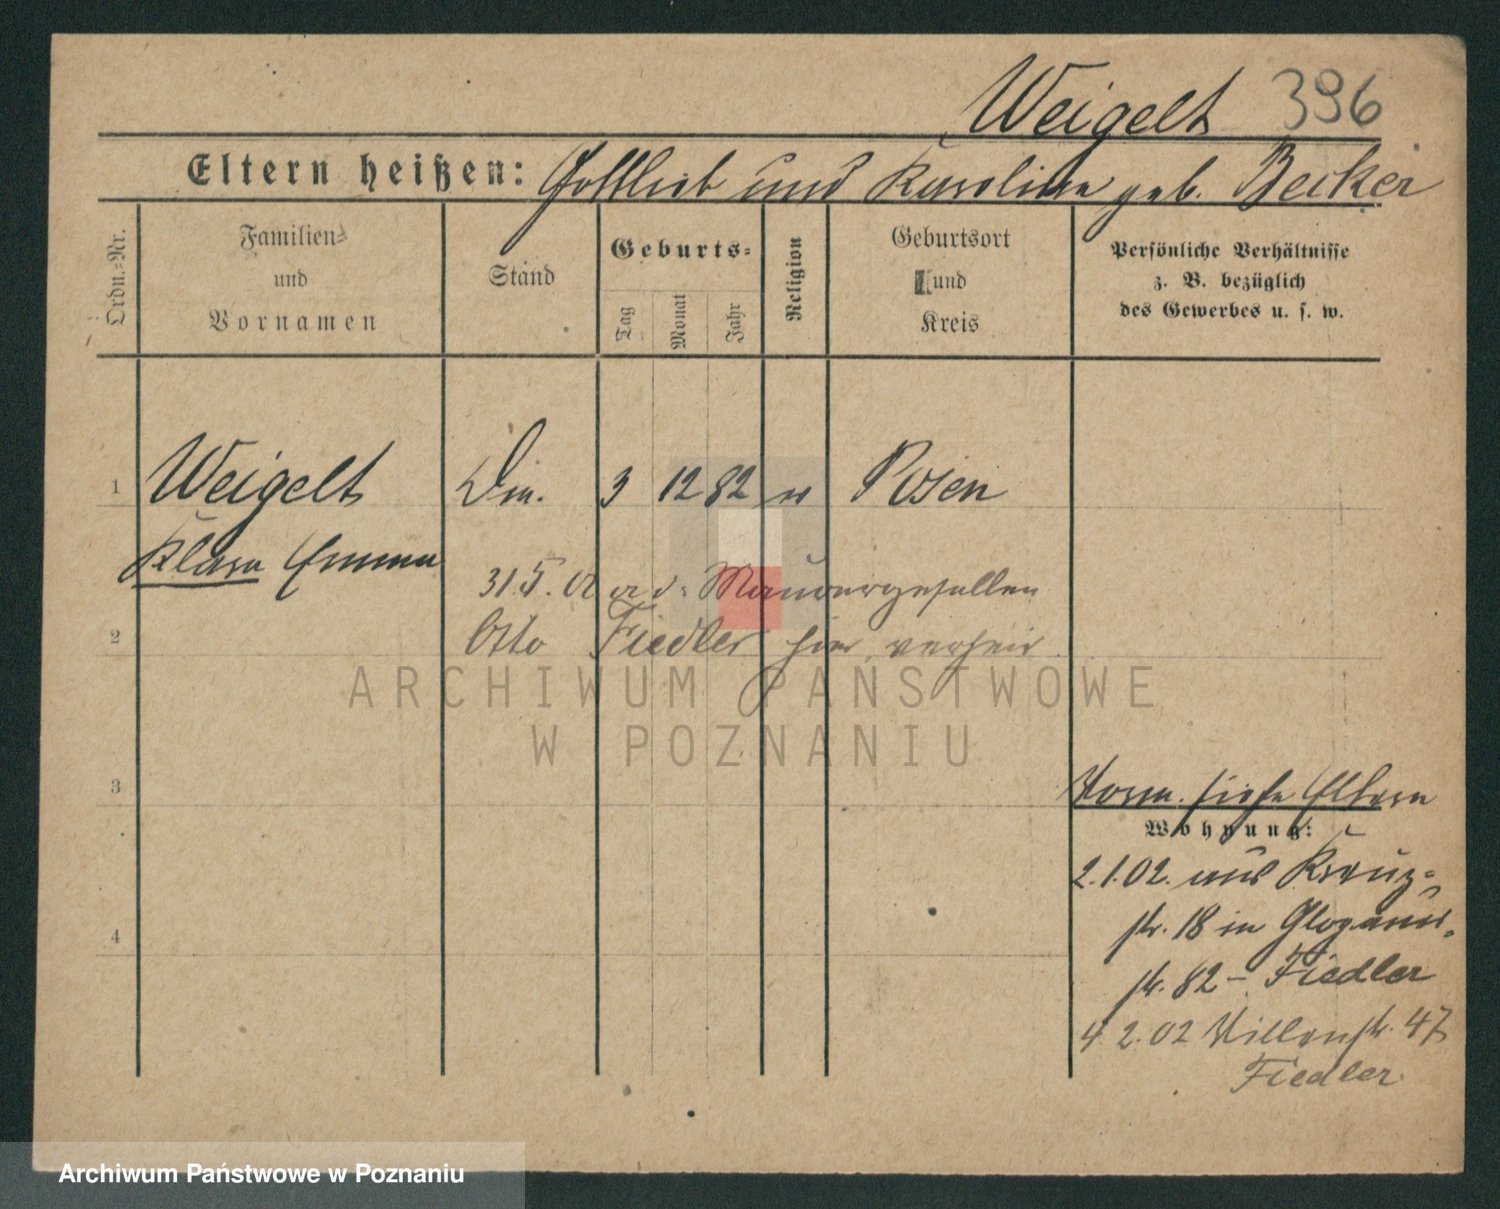 Weigelt 396
Eltern heißen: Gottlieb und Karoline geb. Becker
Ordn.-Nr.
Familien-
und
Vornamen
Stand
Geburts-
Tag
Monat
Jahr
Religion
Geburtsort
und
Kreis
Persönliche Verhältnisse
z. B. bezüglich
des Gewerbes u. s. w.
1 Weigelt 3 12 82 Posen
Klara Emma
a. d. Mauergesellen
2 Otto Fiedler hier verheir
ARCHIWUM PAŃSTWOWE
W POZNANIU
3
siehe Eltern
Wohnung:
2.1.02. aus Kreuz-
str. 18 in Glogauer-
4
str. 82 – Fiedler
4 2.02 str. 47
Fiedler
Archiwum Państwowe w Poznaniu